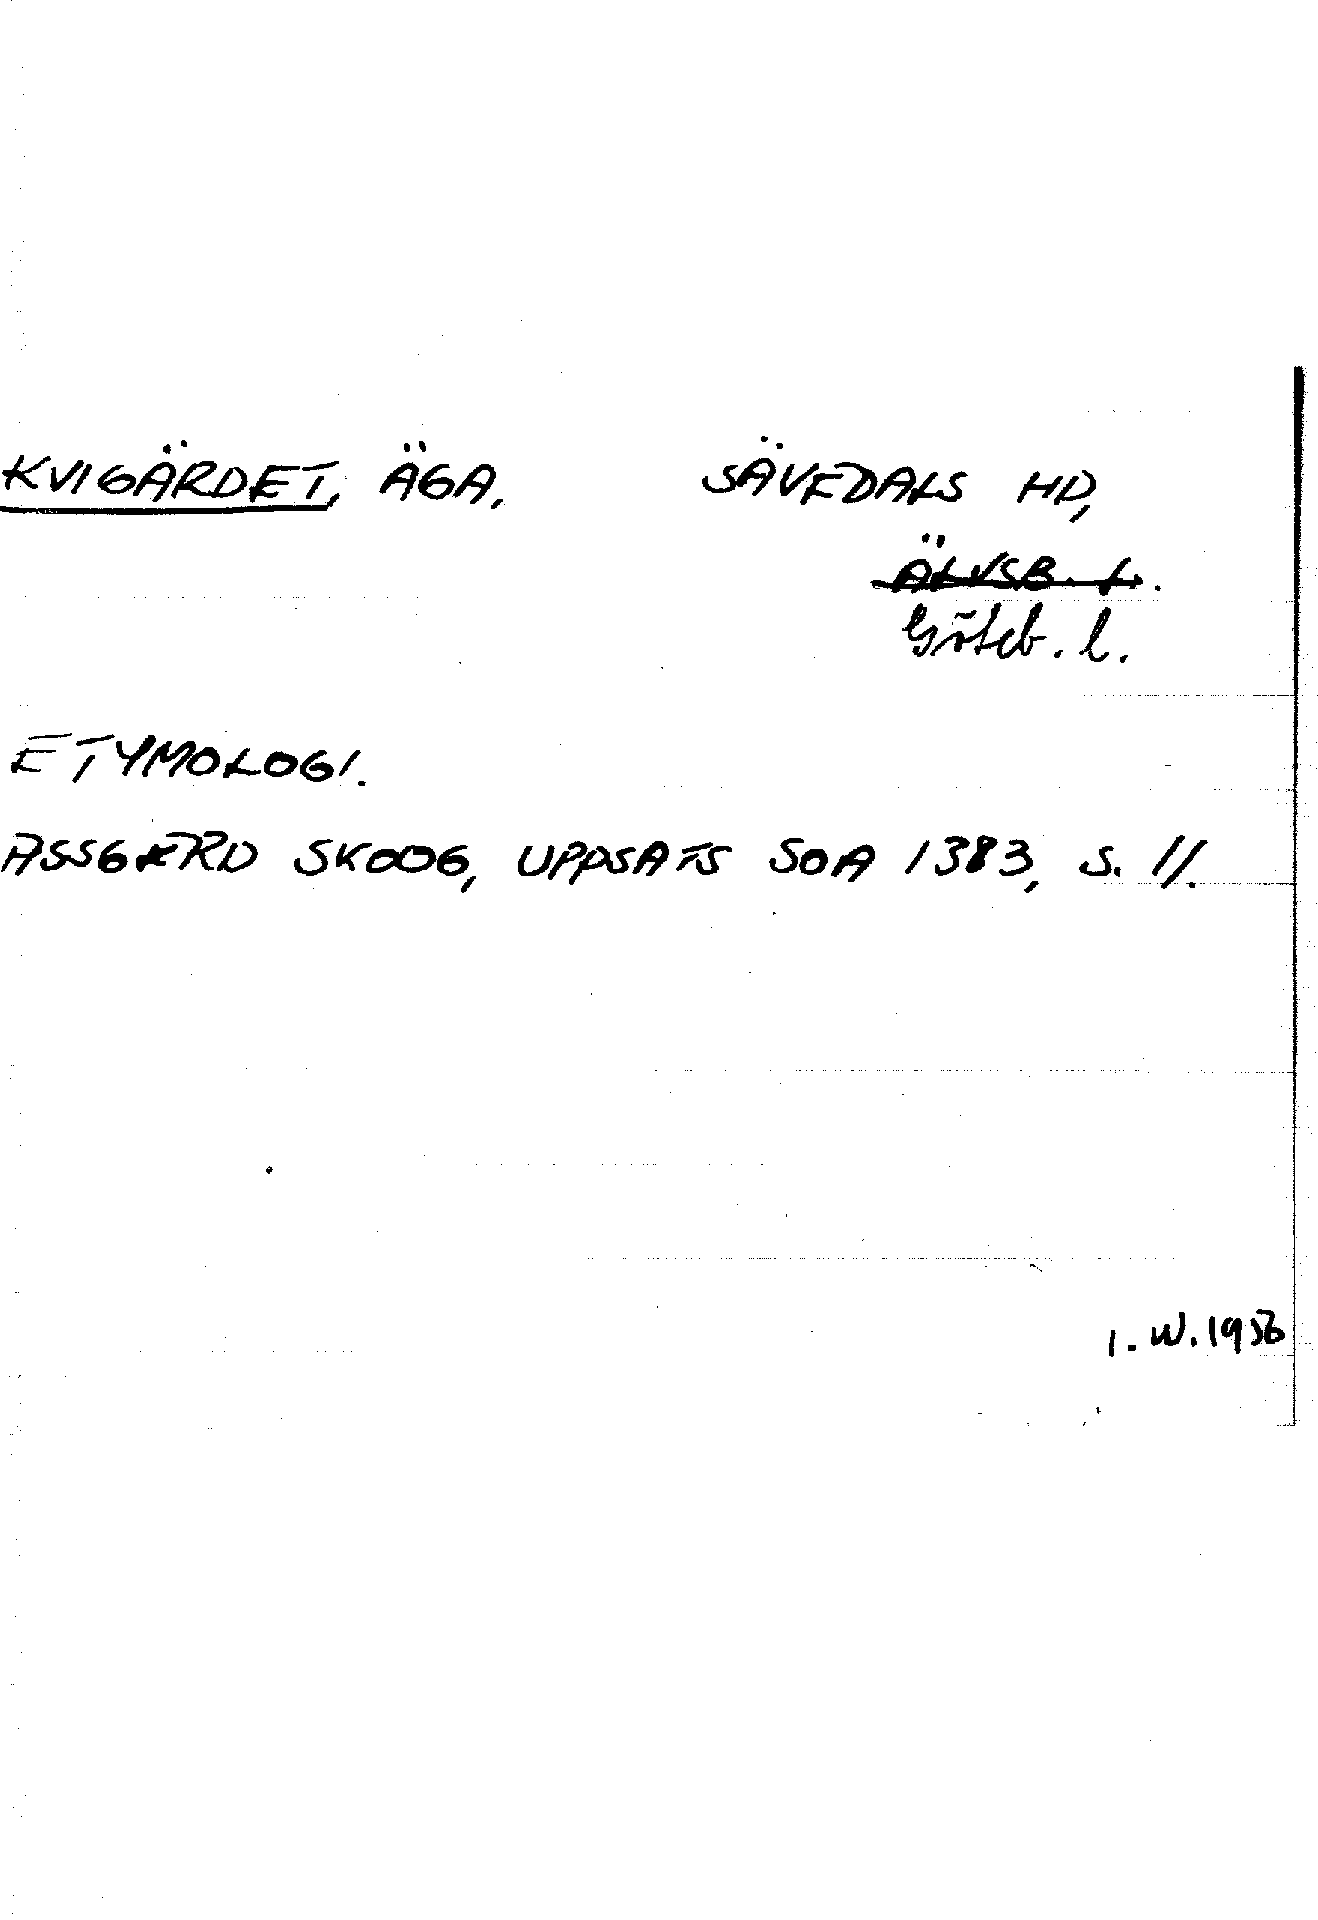 KVIGÄRDET, ÄGA, SÄVEDALS HD,
ÄLVSB. L.
Göteb. l.
ETYMOLOGI.
ASSGERD SKOOG, UPPSATS SOA 1383, S. 11.
I. W. 1956